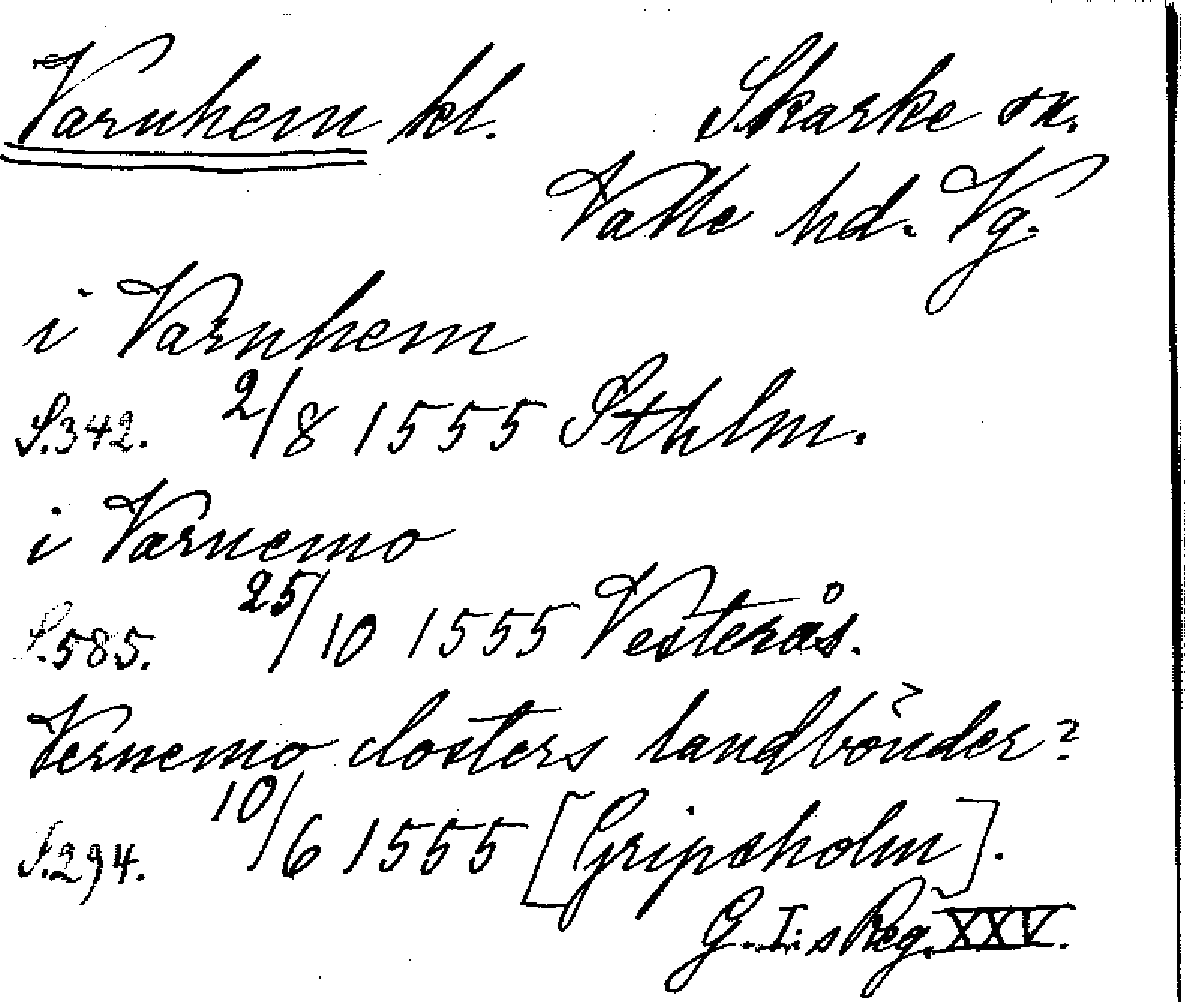 Varnhem kl. Skarke sn.
Valle hd. Vg.
i Varnhem
S.342. 2/8 1555 Sthlm.
i Värnemo
S.585. 25/10 1555 Vesterås.
Vernemo closters landbönder?
S.294. 10/6 1555 [Gripsholm].
G. I:s Reg. XXV.